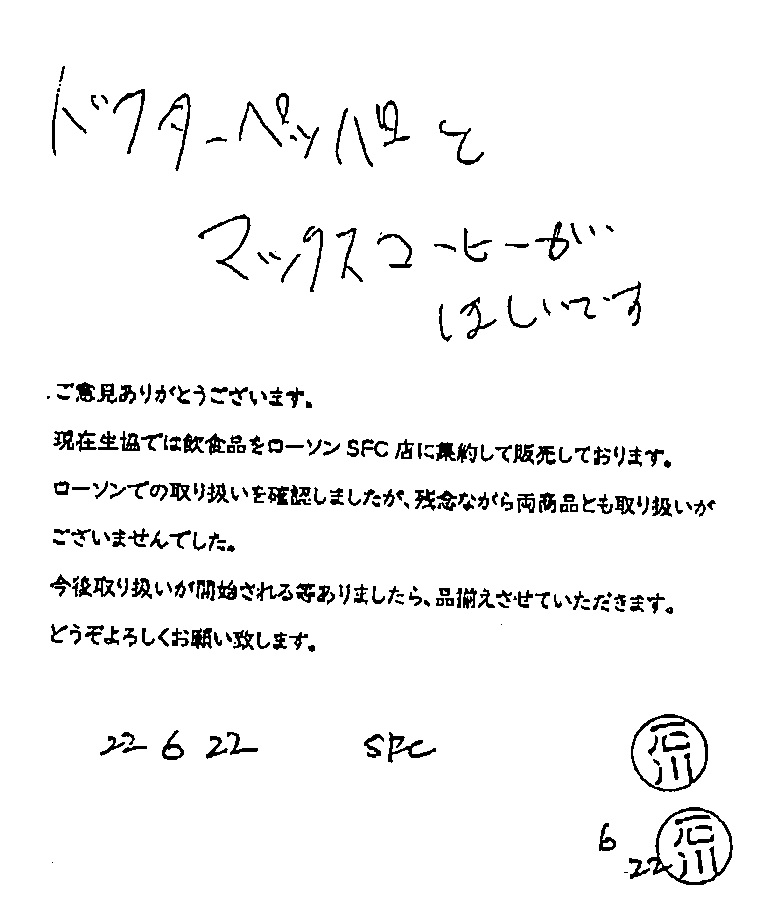 ドクターペッパーと
マックスコーヒーが
ほしいです
ご意見ありがとうございます。
現在生協では飲食品をローソン SFC 店に集約して販売しております。
ローソンでの取り扱いを確認しましたが、残念ながら両商品とも取り扱いが
ございませんでした。
今後取り扱いが開始される等ありましたら、品揃えさせていただきます。
どうぞよろしくお願い致します。
22 6 22 SFC 石川
6 22 石川